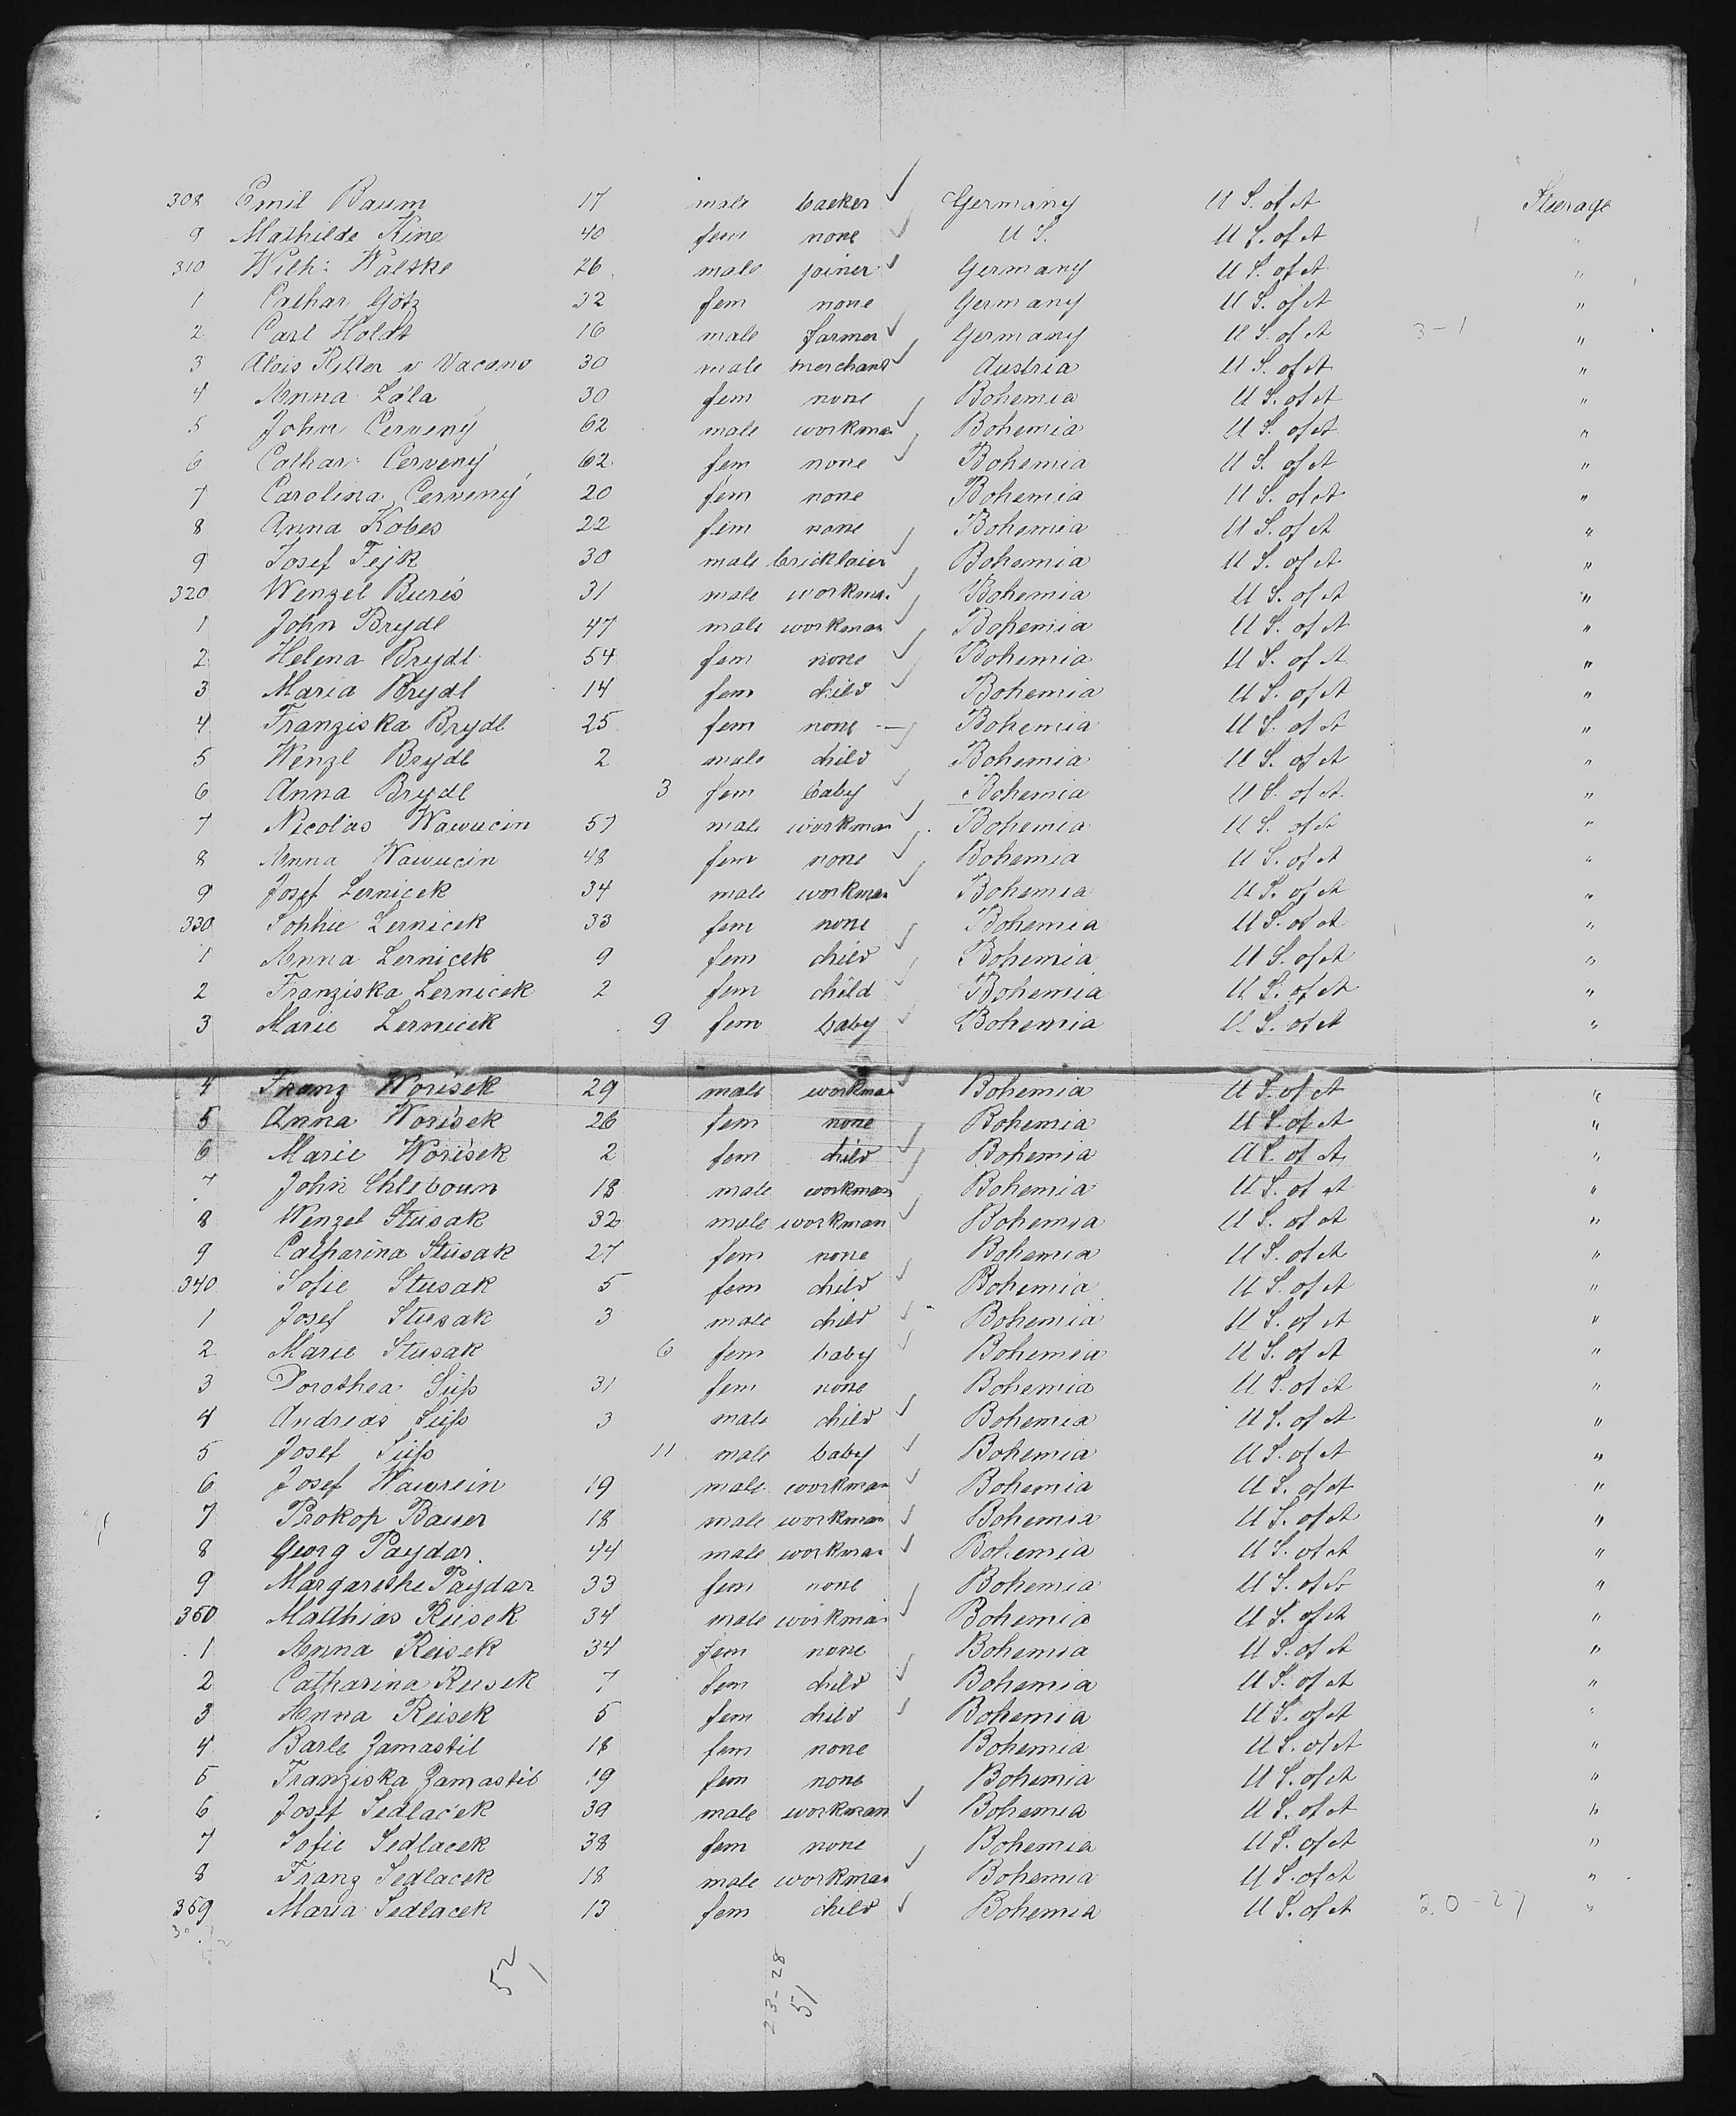 308 Emil Baum 17 male backer Germany U S. of A Steerage
9 Mathilde Kine 40 fem none U S. U S. of A "
310 Wilh: Walske 26 male joiner Germany U S. of A "
1 Cathar Götz 32 fem none Germany U S. of A "
2 Carl Holdt 16 male farmer Germany U S. of A 3-1 "
3 Alois Ritter v Vacano 30 male merchant Austria U S. of A "
4 Anna Lála 30 fem none Bohemia U S. of A "
5 John Cerveny 62 male workman Bohemia U S. of A "
6 Cathar: Cerveny 62 fem none Bohemia U S. of A "
7 Carolina Cerveny 20 fem none Bohemia U S. of A "
8 Anna Kobes 22 fem none Bohemia U S. of A "
9 Josef Fejk 30 male bricklaier Bohemia U S. of A "
320 Wenzel Bures 31 male workman Bohemia U S. of A "
1 John Brydl 47 male workman Bohemia U S. of A "
2 Helena Brydl 54 fem none Bohemia U S. of A "
3 Maria Brydl 14 fem child Bohemia U S. of A "
4 Franziska Brydl 25 fem none — Bohemia U S. of A "
5 Wenzl Brydl 2 male child Bohemia U S. of A "
6 Anna Brydl 3 fem baby Bohemia U S. of A "
7 Nicolas Wawucin 57 male workman Bohemia U S. of A "
8 Anna Wawucin 48 fem none Bohemia U S. of A "
9 Josef Lernicek 34 male workman Bohemia U S. of A "
330 Sophie Lernicek 33 fem none Bohemia U S. of A "
1 Anna Lernicek 9 fem child Bohemia U S. of A "
2 Franziska Lernicek 2 fem child Bohemia U S. of A "
3 Marie Lernicek 9 fem baby Bohemia U S. of A "
4 Franz Worisek 29 male workman Bohemia U S. of A "
5 Anna Worisek 26 fem none Bohemia U S. of A "
6 Marie Worisek 2 fem child Bohemia U S. of A "
7 John Chleboun 18 male workman Bohemia U S. of A "
8 Wenzel Stusak 32 male workman Bohemia U S. of A "
9 Catharina Stusak 27 fem none Bohemia U S. of A "
340 Sofie Stusak 5 fem child Bohemia U S. of A "
1 Josef Stusak 3 male child Bohemia U S. of A "
2 Marie Stusak 6 fem baby Bohemia U S. of A "
3 Dorothea Süß 31 fem none Bohemia U S. of A "
4 Andreas Süß 3 male child Bohemia U S. of A "
5 Josef Süß 11 male baby Bohemia U S. of A "
6 Josef Wawrein 19 male workman Bohemia U S. of A "
7 Prokop Bauer 18 male workman Bohemia U S. of A "
8 Georg Paydar 44 male workman Bohemia U S. of A "
9 Margarethe Paydar 33 fem none Bohemia U S. of A "
350 Matthias Reisek 34 male workman Bohemia U S. of A "
1 Anna Reisek 34 fem none Bohemia U S. of A "
2 Catharina Reisek 7 fem child Bohemia U S. of A "
3 Anna Reisek 5 fem child Bohemia U S. of A "
4 Barb Zamastil 18 fem none Bohemia U S. of A "
5 Franziska Zamastil 19 fem none Bohemia U S. of A "
6 Josef Sedlacek 39 male workman Bohemia U S. of A "
7 Sofie Sedlacek 38 fem none Bohemia U S. of A "
8 Franz Sedlacek 18 male workman Bohemia U S. of A "
359 Maria Sedlacek 13 fem child Bohemia U S. of A 20-27 "
52
1
23-28
51